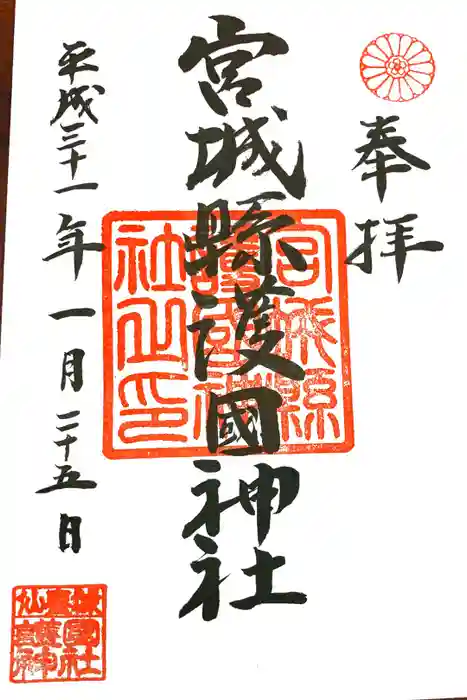 奉拝
宮城縣護國神社
平成三十一年一月二十五日
宮城縣
護國神
社之印